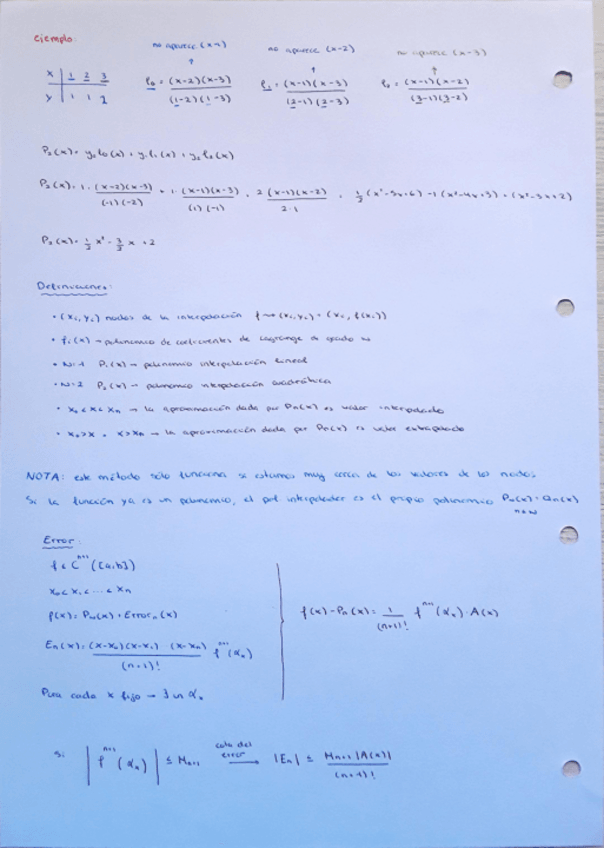 ejemplo:
no aparece (x-1)   no aparece (x-2)   no aparece (x-3)
x | 1 2 3   ℓ₀ = (x-2)(x-3) / (1-2)(1-3)   ℓ₁ = (x-1)(x-3) / (2-1)(2-3)   ℓ₂ = (x-1)(x-2) / (3-1)(3-2)
y | 1 1 2
P₂(x) = y₀ℓ₀(x) + y₁ℓ₁(x) + y₂ℓ₂(x)
P₂(x) = 1 · (x-2)(x-3) / (-1)(-2) + 1 · (x-1)(x-3) / (1)(-1) + 2 (x-1)(x-2) / 2·1 = 1/2 (x²-5x+6) - 1(x²-4x+3) + (x²-3x+2)
P₂(x) = 1/2 x² - 3/2 x + 2
Definiciones:
• (xᵢ, yᵢ) nodos de la interpolación f → (xᵢ, yᵢ) = (xᵢ, f(xᵢ))
• ℓᵢ(x) → polinomio de coeficientes de Lagrange de grado N
• N=1 P₁(x) → polinomio interpolación lineal
• N=2 P₂(x) → polinomio interpolación cuadrática
• x₀ < x < xₙ → la aproximación dada por Pₙ(x) es valor interpolado
• x₀ > x x > xₙ → la aproximación dada por Pₙ(x) es valor extrapolado
NOTA: este método sólo funciona si estamos muy cerca de los valores de los nodos
Si la función ya es un polinomio, el pol interpolador es el propio polinomio Pₙ(x) = Qₙ(x)
Error:
f ∈ Cⁿ⁺¹([a,b])
x₀ < x₁ < ... < xₙ
f(x) = Pₙ(x) + Errorₙ(x)   f(x) - Pₙ(x) = 1/(n+1)! fⁿ⁺¹(αₓ) · A(x)
Eₙ(x) = (x-x₀)(x-x₁) (x-xₙ) / (n+1)! fⁿ⁺¹(αₓ)
Para cada x fijo → ∃ un αₓ
Si |fⁿ⁺¹(αₓ)| ≤ Mₙ₊₁ cota del error → |Eₙ| ≤ Mₙ₊₁ |A(x)| / (n+1)!